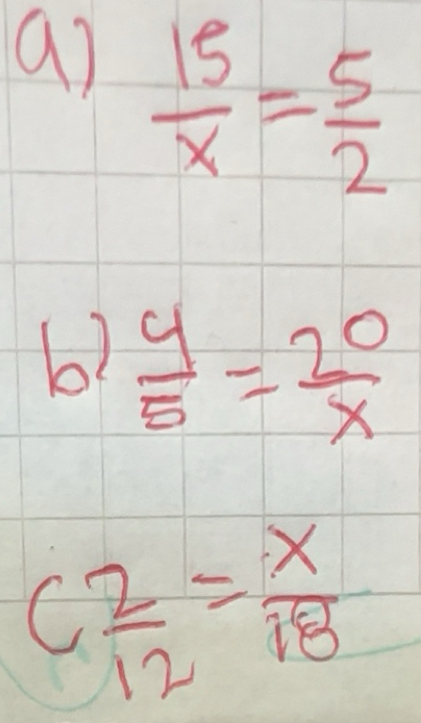 a) 15/x = 5/2
b) 4/5 = 20/x
c 2/12 = x/18